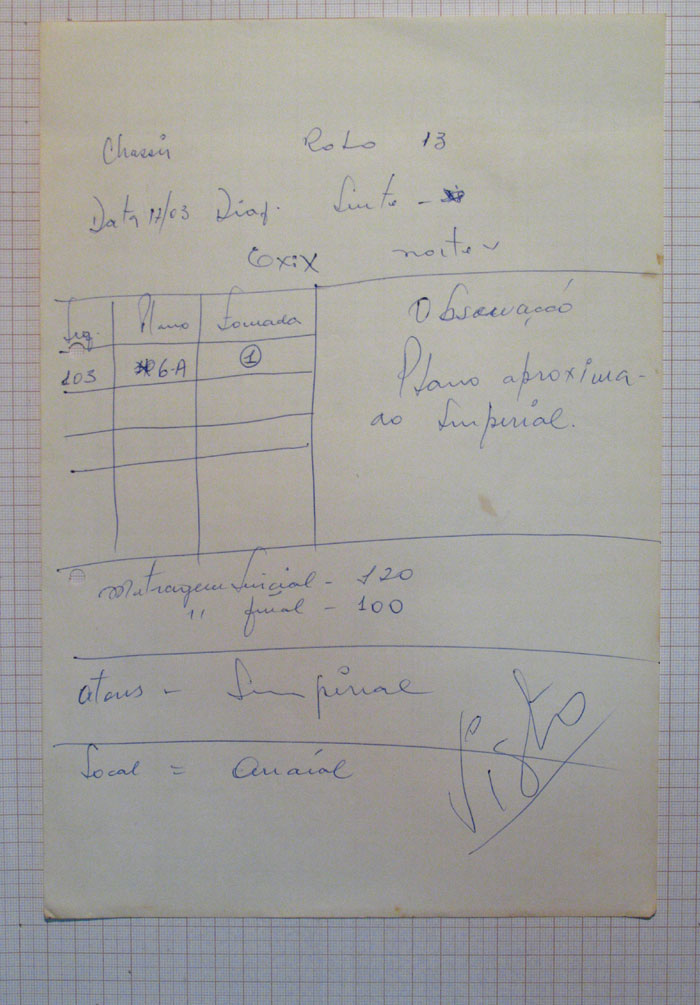 Chassis Rolo 13
Data 17/03 Diaf.
noite
Seq. Plano Tomada Observação
103 6-A 1 Plano aproxima-
ao Imperial.
Metragem Inicial - 120
" final - 100
atores - Imperial
Local = Arraial
Visto